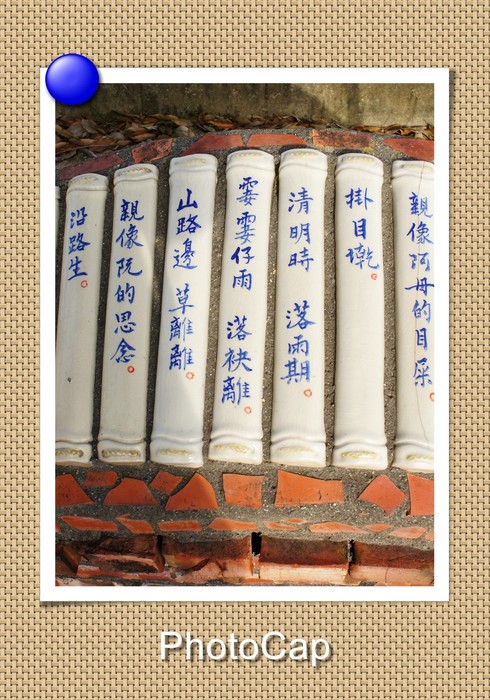 親像阿母的目屎
掛目墘
清明時 落雨期
霎霎仔雨 落袂離
山路邊 草離離
親像阮的思念
沿路生
PhotoCap